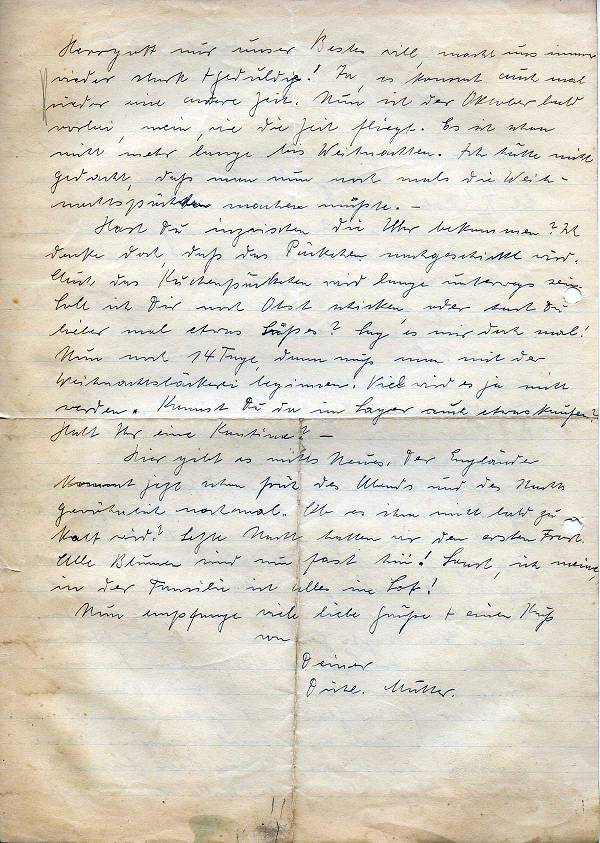 Herrgott nur unser Bestes will, macht uns immer
wieder stark + geduldig! Ja, es kommt auch mal
wieder eine andere Zeit. Nun ist der Oktober bald
vorbei, nein, wie die Zeit fliegt. Es ist schon
nicht mehr lange bis Weihnachten. Ich hätte nicht
gedacht, daß man nun noch mals die Weih-
nachtspäckchen machen müßte. –
Hast Du inzwischen die Uhr bekommen? Ich
denke doch, daß das Päckchen nachgeschickt wird.
Auch das Kuchenpäckchen wird lange unterwegs sein.
Soll ich Dir noch Obst schicken oder hast Du
lieber mal etwas Süßes? Sag' es mir doch mal!
Nun noch 14 Tage, dann muß man mit der
Weihnachtsbäckerei beginnen. Viel wird es ja nicht
werden. Kannst Du da im Lager auch etwas kaufen?
Habt Ihr eine Kantine? –
Hier gibt es nichts Neues. Der Engländer
kommt jetzt schon früh des Abends und des Nachts
gewöhnlich nochmal. Ob es ihm nicht bald zu
kalt wird? Letzte Nacht hatten wir den ersten Frost.
Alle Blumen sind nun fast hin! Sonst, ich meine,
in der Familie ist alles im Lot!
Nun empfange viele liebe Grüße + einen Kuß
von
Deiner
Mutter.